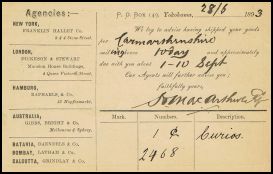 Agencies:—
NEW YORK,
FRANKLIN HALLET Co.
LONDON,
DICKESON & STEWART
Mansion House Buildings,
4 Queen Victoria Street.
HAMBURG,
RAPHAELS, & Co.
AUSTRALIA,
GIBBS, BRIGHT & Co.
Melbourne & Sydney.
BATAVIA, DAENDELS & Co.
BOMBAY, LATHAM & Co.
CALCUTTA, GRINDLAY & Co.
P. O. BOX 149 Yokohama, 28/8 1893
We beg to advise having shipped your goods
per Carmarthenshire
sailing 10 day and approximately
due with you about 1-10 Sept
Our Agents will further advise you;
faithfully yours,
Mark. Numbers. Description.
1 Curios.
2468